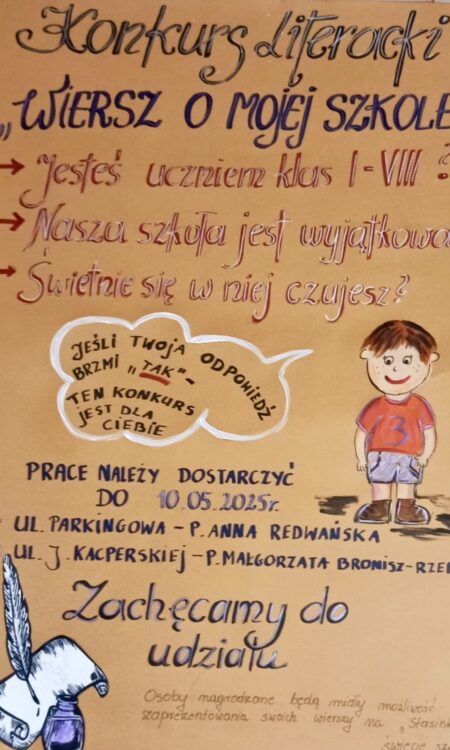 Konkurs Literacki
„WIERSZ O MOJEJ SZKOLE
→ Jesteś uczniem klas I-VIII ?
→ Nasza szkoła jest wyjątkowa
→ Świetnie się w niej czujesz?
JEŚLI TWOJA ODPOWIEDŹ
BRZMI „TAK" -
TEN KONKURS
JEST DLA
CIEBIE
3
PRACE NALEŻY DOSTARCZYĆ
DO 10.05.2025r.
UL. PARKINGOWA – P. ANNA REDWAŃSKA
UL. J. KACPERSKIEJ – P. MAŁGORZATA BRONISZ-RZE
Zachęcamy do
udziału
Osoby nagrodzone będą miały możliwość
zaprezentowania swoich wierszy na „Stasink
święcie sz